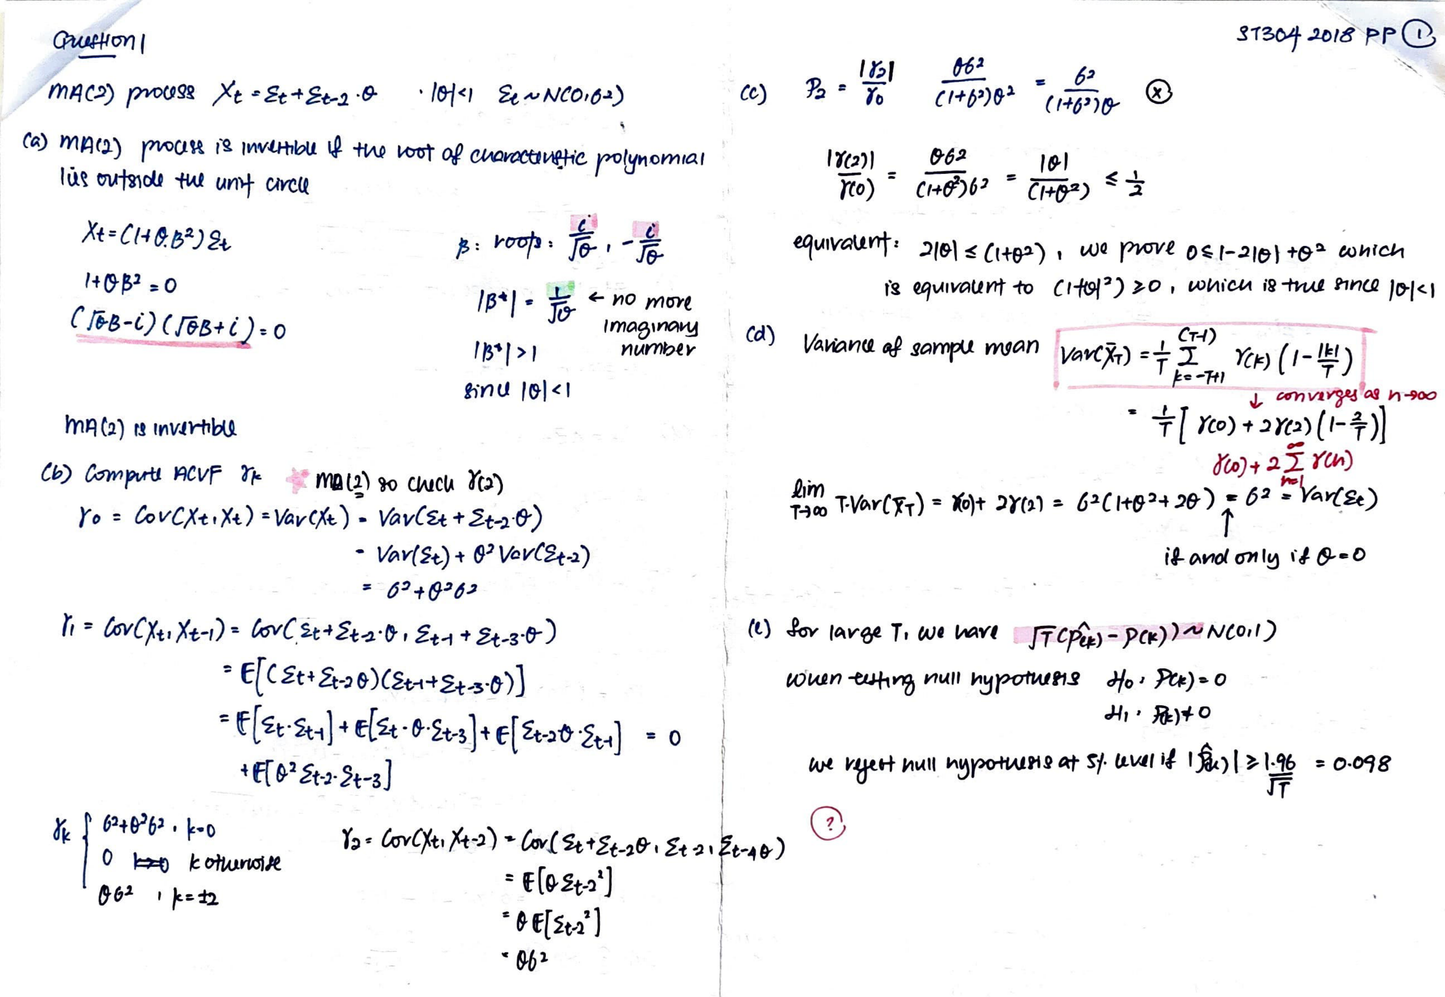 Question 1
ST304 2018 PP ①
MA(2) process Xt = Σt + Σt-2·θ · |θ|<1 Σt ~ N(0,σ²)
(a) MA(2) process is invertible if the root of characteristic polynomial
lies outside the unit circle
Xt = (1+θ.B²)Σt
1+θB² = 0
(√θB-i)(√θB+i) = 0
B: roots: i/√θ, -i/√θ
|B*| = 1/√θ ← no more
imaginary
number
|B*| > 1
since |θ|<1
MA(2) is invertible
(b) Compute ACVF γk MA(2) so check γ(2)
γ0 = Cov(Xt, Xt) = Var(Xt) = Var(Σt + Σt-2·θ)
= Var(Σt) + θ² Var(Σt-2)
= σ²+θ²σ²
γ1 = Cov(Xt, Xt-1) = Cov(Σt+Σt-2·θ, Σt-1 + Σt-3·θ)
= E[(Σt+Σt-2θ)(Σt-1+Σt-3·θ)]
= E[Σt·Σt-1] + E[Σt·θ·Σt-3] + E[Σt-2θ·Σt-1] = 0
+E[θ²Σt-2·Σt-3]
γk { σ²+θ²σ², k=0
0 k otherwise
θσ², k=±2
γ2 = Cov(Xt, Xt-2) = Cov(Σt+Σt-2θ, Σt-2, Σt-4θ)
= E[θΣt-2²]
= θE[Σt-2²]
= θσ²
(c) P2 = |γ2|/γ0 θσ²/(1+σ²)θ² = σ²/(1+σ²)θ ⓧ
|γ(2)|/γ(0) = θσ²/(1+θ²)σ² = |θ|/(1+θ²) ≤ 1/2
equivalent: 2|θ| ≤ (1+θ²), we prove 0≤1-2|θ|+θ² which
is equivalent to (1+|θ|²) ≥0, which is true since |θ|<1
(d) Variance of sample mean Var(X̄T) = 1/T Σ(T-1) k=-T+1 γ(k) (1-|k|/T)
↓ converges as n→∞
= 1/T [γ(0) + 2γ(2)(1-2/T)]
γ(0) + 2 Σ∞ n=1 γ(n)
lim T→∞ T·Var(X̄T) = γ(0)+ 2γ(2) = σ²(1+θ²+2θ) = σ² = Var(Σt)
↑
if and only if θ=0
(e) for large T, we have √T(P̂(k) - P(k)) ~ N(0,1)
when testing null hypothesis H0: P(k) = 0
H1: P(k)≠0
we reject null hypothesis at 5% level if |P̂(k)| ≥ 1.96/√T = 0.098
?